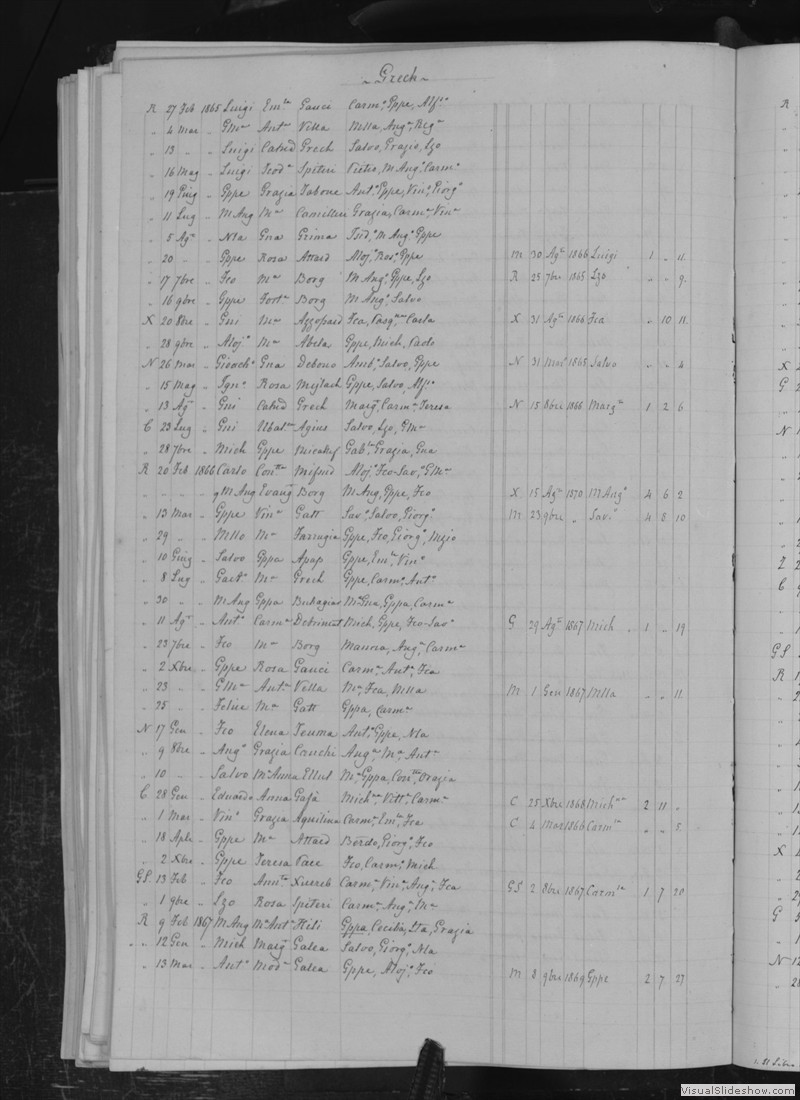 ~ Grech ~
R 27 Feb 1865 Luigi Em:ta Gauci Carm:a, Gppe, Alf:o
" 4 Mar " GM:a Ant:a Vella Mlla, Ang:a, Reg:a
" 13 " " Luigi Cat:nd Grech Salvo, Grazio, Lzo
" 16 Mag " Luigi Teod:a Spiteri M Ang:a Carm:a
" 19 Giug " Gppe Grazia Tabone Ant:o, Gppe, Vin:o, Giorg:o
" 11 Lug " M Ang M:a Camilleri Grazia, Carm:a Vin:a
" 5 Ag:to " Nla Gna Grima Isid:o M Ang:o Gppe
" 20 " " Gppe Rosa Attard Aloj:o Ros:a Gppe M 30 Ag:to 1866 Luigi 1 " 11
" 17 7bre " Fco M:a Borg M Ang:o, Gppe, Lzo R 25 7bre 1865 Lzo " " 9
" 16 9bre " Gppe Fort:a Borg M Ang:o, Salvo
X 20 8bre " Gni M:a Azzopard Fca, Pasq:na Carla X 31 Ag:to 1866 Fca " 10 11
" 28 9bre " Aloj:o M:a Abela Gppe, Mich, Paolo
N 26 Mar " Gioach:o Gna Debono Amb:o, Salvo, Gppe N 31 Mar:o 1865 Salvo " " 4
" 15 Mag " Ign:o Rosa Mejlach Gppe, Salvo, Alf:o
" 13 Ag:to " Gni Cat:nd Grech Marg:a, Carm:a Teresa N 15 8bre 1866 Marg:ta 1 2 6
C 23 Lug " Gni Ubal:a Agius Salvo, Lzo, GM:a
" 28 7bre " Mich Gppe Micallef Gab:la, Grazia, Gna
R 20 Feb 1866 Carlo Con:tta Mifsud Aloj:o Fco-Sav:o, GM:a
" " " " M Ang Evang Borg M Ang, Gppe, Fco X 15 Ag:to 1870 M Ang:o 4 6 2
" 13 Mar " Gppe Vin:a Gatt Sav:o, Salvo, Giorg:o M 23 9bre " Sav:o 4 8 10
" 29 " " Mllo M:a Farrugia Gppe, Fco, Giorg:o, Nzio
" 10 Giug " Salvo Gppa Apap Gppe, Em:le, Vin:o
" 8 Lug " Gaet:o M:a Grech Gppe, Carm:a, Ant:o
" 30 " " M Ang Gppa Buhagiar M:a Gna, Gppa, Carm:a
" 11 Ag:to " Ant:o Carm:a Debrincat Mich, Gppe, Fco-Sav:o G 29 Ag:to 1867 Mich 1 " 19
" 23 7bre " Fco M:a Borg Ang:a, Carm:a
" 2 Xbre " Gppe Rosa Gauci Carm:a, Ant:a, Fca
" 23 " " GM:a Ant:a Vella M:a, Fca, Mlla M 1 Gen 1867 Mlla " " 11
" 25 " " Felice M:a Gatt Gppa, Carm:a
N 17 Gen " Fco Elena Touma Ant:o, Gppe, Nla
" 9 8bre " Ang:o Grazia Cauchi Ang:a, M:a, Ant:a
" 10 " " Salvo M:a Anna Ellul M:a Gppa, Con:tta, Grazia
C 28 Gen " Eduardo Anna Gafà Mich:na, Vitt:a, Carm:a C 25 Xbre 1868 Mich:na 2 11 "
" 1 Mar " Vin:o Grazia Aquilina Carm:a, Em:la, Fca C 4 Mar 1866 Carm:la " " 5
" 18 Aple " Gppe M:a Attard Berdo, Giorg:o, Fco
" 2 Xbre " Gppe Teresa Pace Fco, Carm:o, Mich
GS. 13 Feb " Fco Ann:ta Xuereb Carm:a, Vin:a, Ang:a, Fca GS 2 8bre 1867 Carm:la 1 7 20
" 1 9bre " Lzo Rosa Spiteri Carm:a, Ang:a, M:a
R 9 Feb 1867 M Ang M:a Ant:a Hili Gppa, Cecilia, Lta, Grazia
" " 12 Gen " Mich Marg:a Galea Salvo, Giorg:o, Nla
" 13 Mar " Ant:o Mod:a Galea Gppe, Aloj:o, Fco M 8 9bre 1869 Gppe 2 7 27
R
X 2
G
N 1
Z 2
C
GS
R 1
X
G
N 12
" 28
VisualSlideshow.com